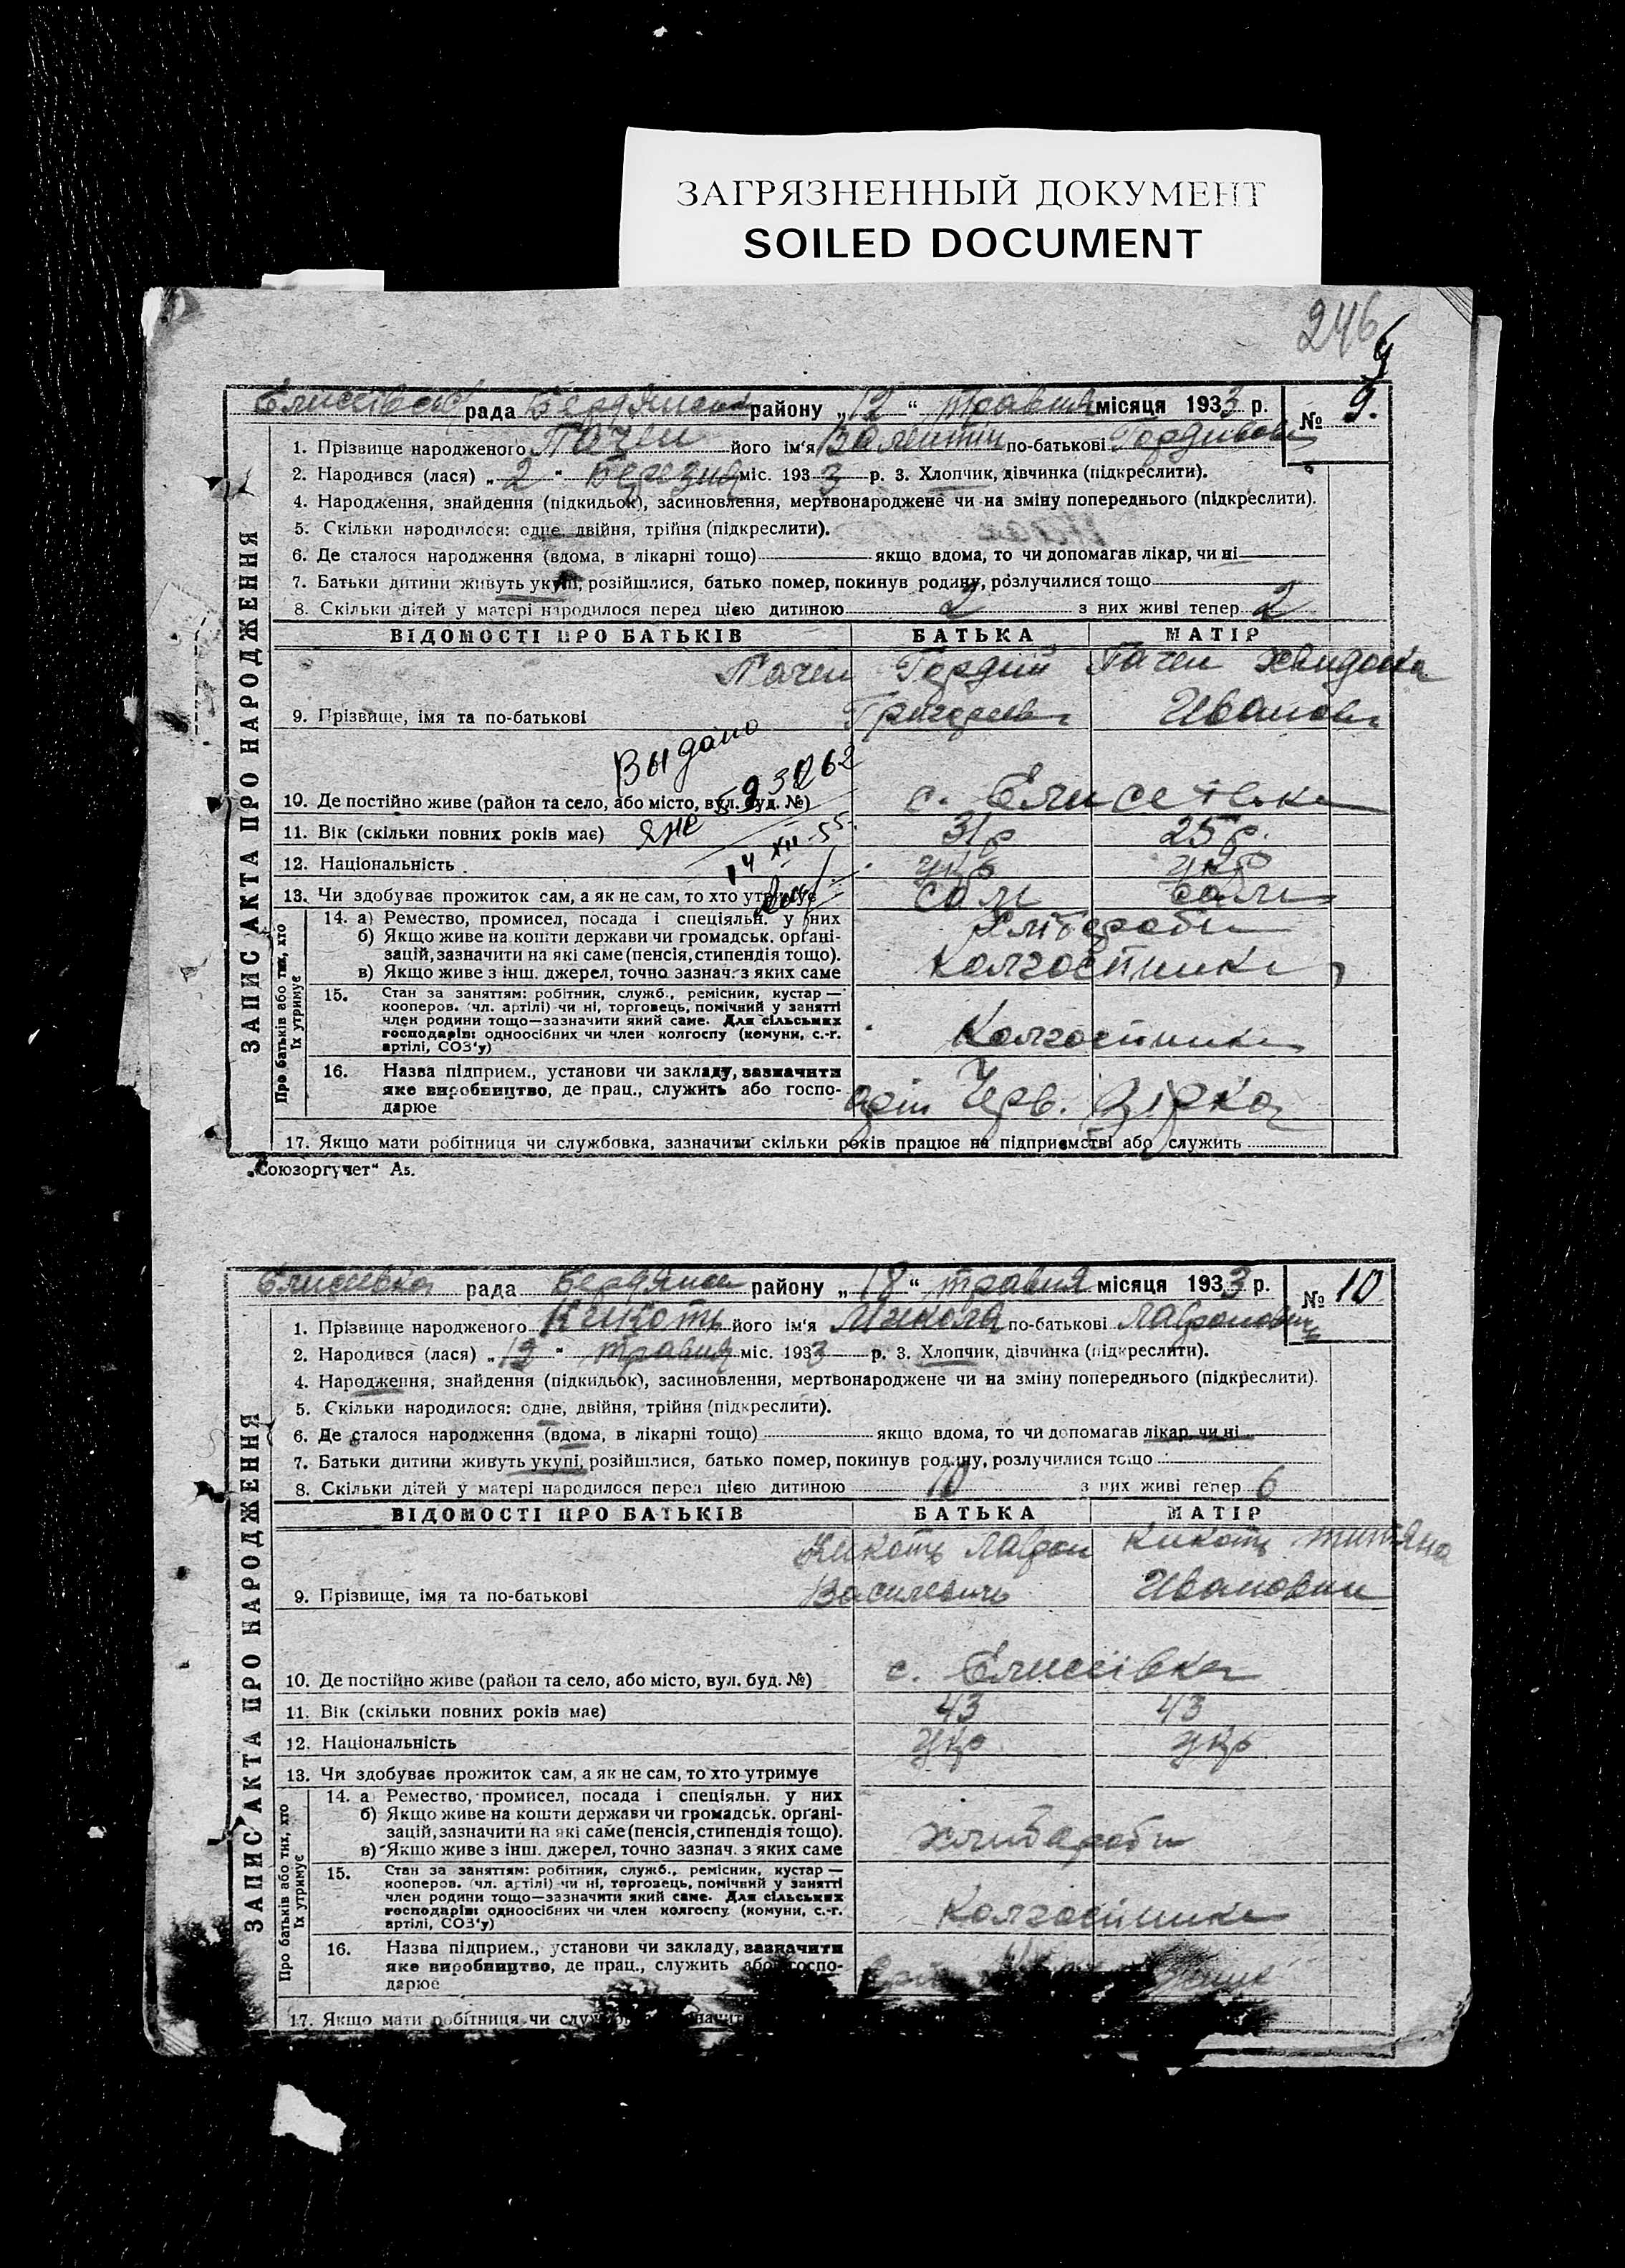 ЗАГРЯЗНЕННЫЙ ДОКУМЕНТ
SOILED DOCUMENT
246
9
рада району „12“ травня місяця 1933 р. № 9.
ЗАПИС АКТА ПРО НАРОДЖЕННЯ
1. Прізвище народженого Пачеи його ім'я Валентін по-батькові
2. Народився (лася) „2“ Березня міс. 1933 р. 3. Хлопчик, дівчинка (підкреслити).
4. Народження, знайдення (підкидьок), засиновлення, мертвонароджене чи на зміну попереднього (підкреслити).
5. Скільки народилося: одне, двійня, трійня (підкреслити).
6. Де сталося народження (вдома, в лікарні тощо) якщо вдома, то чи допомагав лікар, чи ні
7. Батьки дитини живуть укупі, розійшлися, батько помер, покинув родину, розлучилися тощо
8. Скільки дітей у матері народилося перед цією дитиною 2 з них живі тепер 2
ВІДОМОСТІ ПРО БАТЬКІВ БАТЬКА МАТІР
Пачеи Гордий Пачеи
9. Прізвище, імя та по-батькові Ивановн
Выдано
10. Де постійно живе (район та село, або місто, вул. буд. №) с. Елисеівка
11. Вік (скільки повних років має) 31 р 25 р.
12. Національність укр укр
14 XII-55.
13. Чи здобуває прожиток сам, а як не сам, то хто утримує сам сами
Про батьків або тих, хто їх утримує
14. а) Ремество, промисел, посада і спеціяльн. у них
б) Якщо живе на кошти держави чи громадськ. органі-
зацій, зазначити на які саме (пенсія, стипендія тощо).
в) Якщо живе з інш. джерел, точно зазнач. з яких саме
Хлібороби
Колгоспники
15. Стан за заняттям: робітник, служб., ремісник, кустар —
кооперов. (чл. артілі) чи ні, торговець, помічний у занятті
член родини тощо—зазначити який саме. Для сільських
господарів: одноосібних чи член колгоспу (комуни, с.-г.
артілі, СОЗ'у)
Колгоспники
16. Назва підприєм., установи чи закладу, зазначити
яке виробництво, де прац., служить або госпо-
дарює
арт Черв. Зірка
17. Якщо мати робітниця чи службовка, зазначити скільки років працює на підприємстві або служить
„Союзоргучет“ А5.
Елисеевка рада Бердянськ району „18“ травня місяця 1933 р. № 10
ЗАПИС АКТА ПРО НАРОДЖЕННЯ
1. Прізвище народженого Кикоть його ім'я Микола по-батькові Лавронович
2. Народився (лася) травня міс. 1933 р. 3. Хлопчик, дівчинка (підкреслити).
4. Народження, знайдення (підкидьок), засиновлення, мертвонароджене чи на зміну попереднього (підкреслити).
5. Скільки народилося: одне, двійня, трійня (підкреслити).
6. Де сталося народження (вдома, в лікарні тощо) якщо вдома, то чи допомагав лікар, чи ні
7. Батьки дитини живуть укупі, розійшлися, батько помер, покинув родину, розлучилися тощо
8. Скільки дітей у матері народилося перед цією дитиною 10 з них живі тепер 6
ВІДОМОСТІ ПРО БАТЬКІВ БАТЬКА МАТІР
Кикоть Лаврон Кикоть Титяна
9. Прізвище, імя та по-батькові Василевичь Ивановни
10. Де постійно живе (район та село, або місто, вул. буд. №) с. Елисеівка
11. Вік (скільки повних років має) 43 43
12. Національність укр укр
13. Чи здобуває прожиток сам, а як не сам, то хто утримує
Про батьків або тих, хто їх утримує
14. а Ремество, промисел, посада і спеціяльн. у них
б) Якщо живе на кошти держави чи громадськ. органі-
зацій, зазначити на які саме (пенсія, стипендія тощо).
в) Якщо живе з інш. джерел, точно зазнач. з яких саме
хлибароби
15. Стан за заняттям: робітник, служб., ремісник, кустар —
кооперов. (чл. артілі) чи ні, торговець, помічний у занятті
член родини тощо—зазначити який саме. Для сільських
господарів: одноосібних чи член колгоспу (комуни, с.-г.
артілі, СОЗ'у)
Колгоспники
16. Назва підприєм., установи чи закладу, зазначити
яке виробництво, де прац., служить або госпо-
дарює
17. Якщо мати робітниця чи